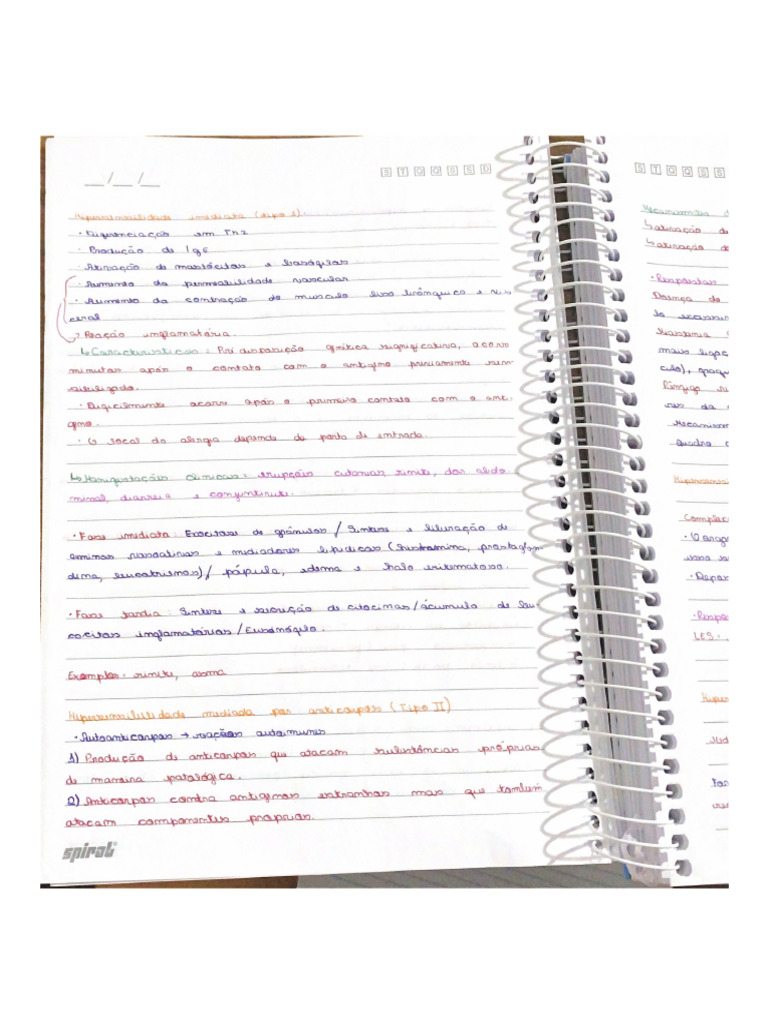 __/__/__
S T Q Q S S D
Hipersensibilidade imediata (tipo 1):
• Diferenciação em Th2
• Produção de IgE
• Ativação de mastócitos e basófilos
• Aumento da permeabilidade vascular
• Aumento da contração do músculo liso brônquico e vis-
ceral
→ Reação inflamatória.
↳ Características: Pré disposição genética significativa, ocorre
minutos após o contato com o antígeno previamente sen-
sibilizado.
• Dificilmente ocorre após o primeiro contato com o antí-
geno.
• O local da alergia depende da porta de entrada.
↳ Manifestações clínicas: erupções cutâneas, rinite, dor abdo
minal, diarreia e conjuntivite.
• Fase imediata: Exocitose de grânulos / Síntese e liberação de
aminas vasoativas e mediadores lipídicos (histamina, prostaglan-
dina, leucotrienos) / pápula, edema e halo eritematoso.
• Fase tardia: Síntese e secreção de citocinas / Acúmulo de leu
cócitos inflamatórios / Eosinófilo.
Exemplos: rinite, asma
Hipersensibilidade mediada por anticorpos (Tipo II)
• Autoanticorpos → reações autoimunes
1) Produção de anticorpos que atacam substâncias próprias
de maneira patológica.
2) Anticorpos contra antígenos estranhos mas que também
atacam componentes próprios.
spiral
S T Q Q S S
Mecanismos
↳ ativação d
↳ ativação de
• Respostas
Doença de
Quadro c
• O
LES: